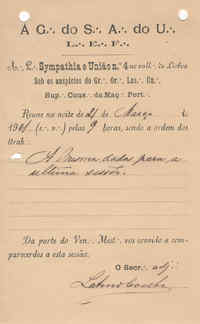 À G∴ do S∴ A∴ do U∴
L∴ E∴ F∴
A∴ L∴ Sympathia e União n.º 4 ao vall∴ de Lisboa
Sob os auspicios do Gr∴ Or∴ Lus∴ Un∴
Sup∴ Cons∴ da Maç∴ Port∴
Reune na noite de 21 de Março de
190 (e∴ v∴) pelas 9 horas, sendo a ordem dos
trab∴
A mesma dada para a
ultima sessão.
Da parte do Ven∴ Mest∴ vos convido a com-
parecerdes a esta sessão.
O Secr∴ adj∴